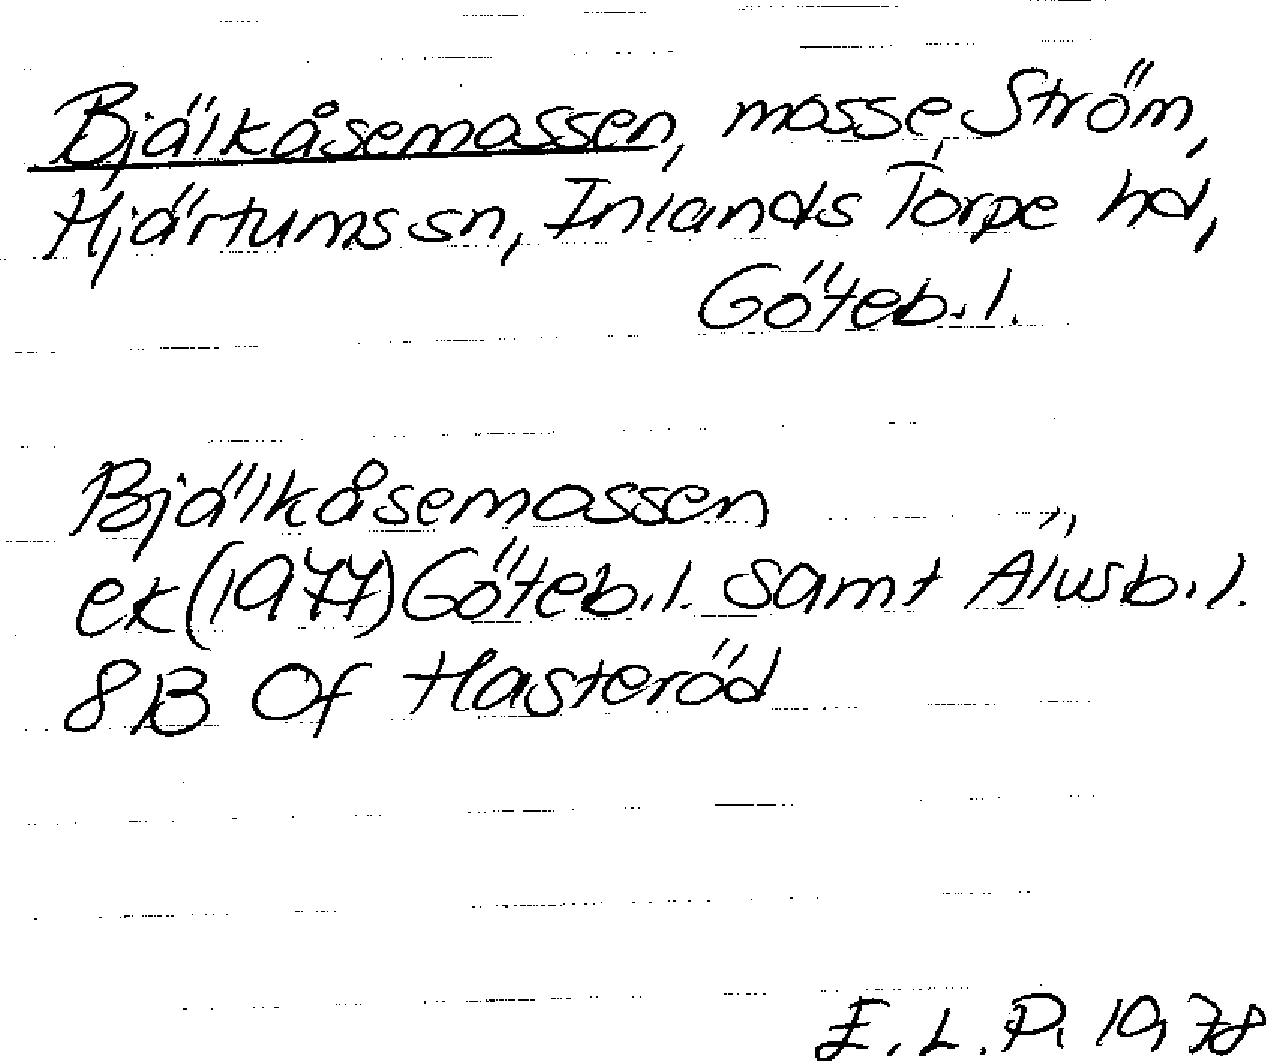 Bjälkåsemossen, mosse, Ström,
Hjärtums sn, Inlands Torpe hd,
Göteb.l.
Bjälkåsemossen
ek (1977) Göteb.l. samt Älvsb.l.
8B 0f Hasteröd
E.L.P. 1978